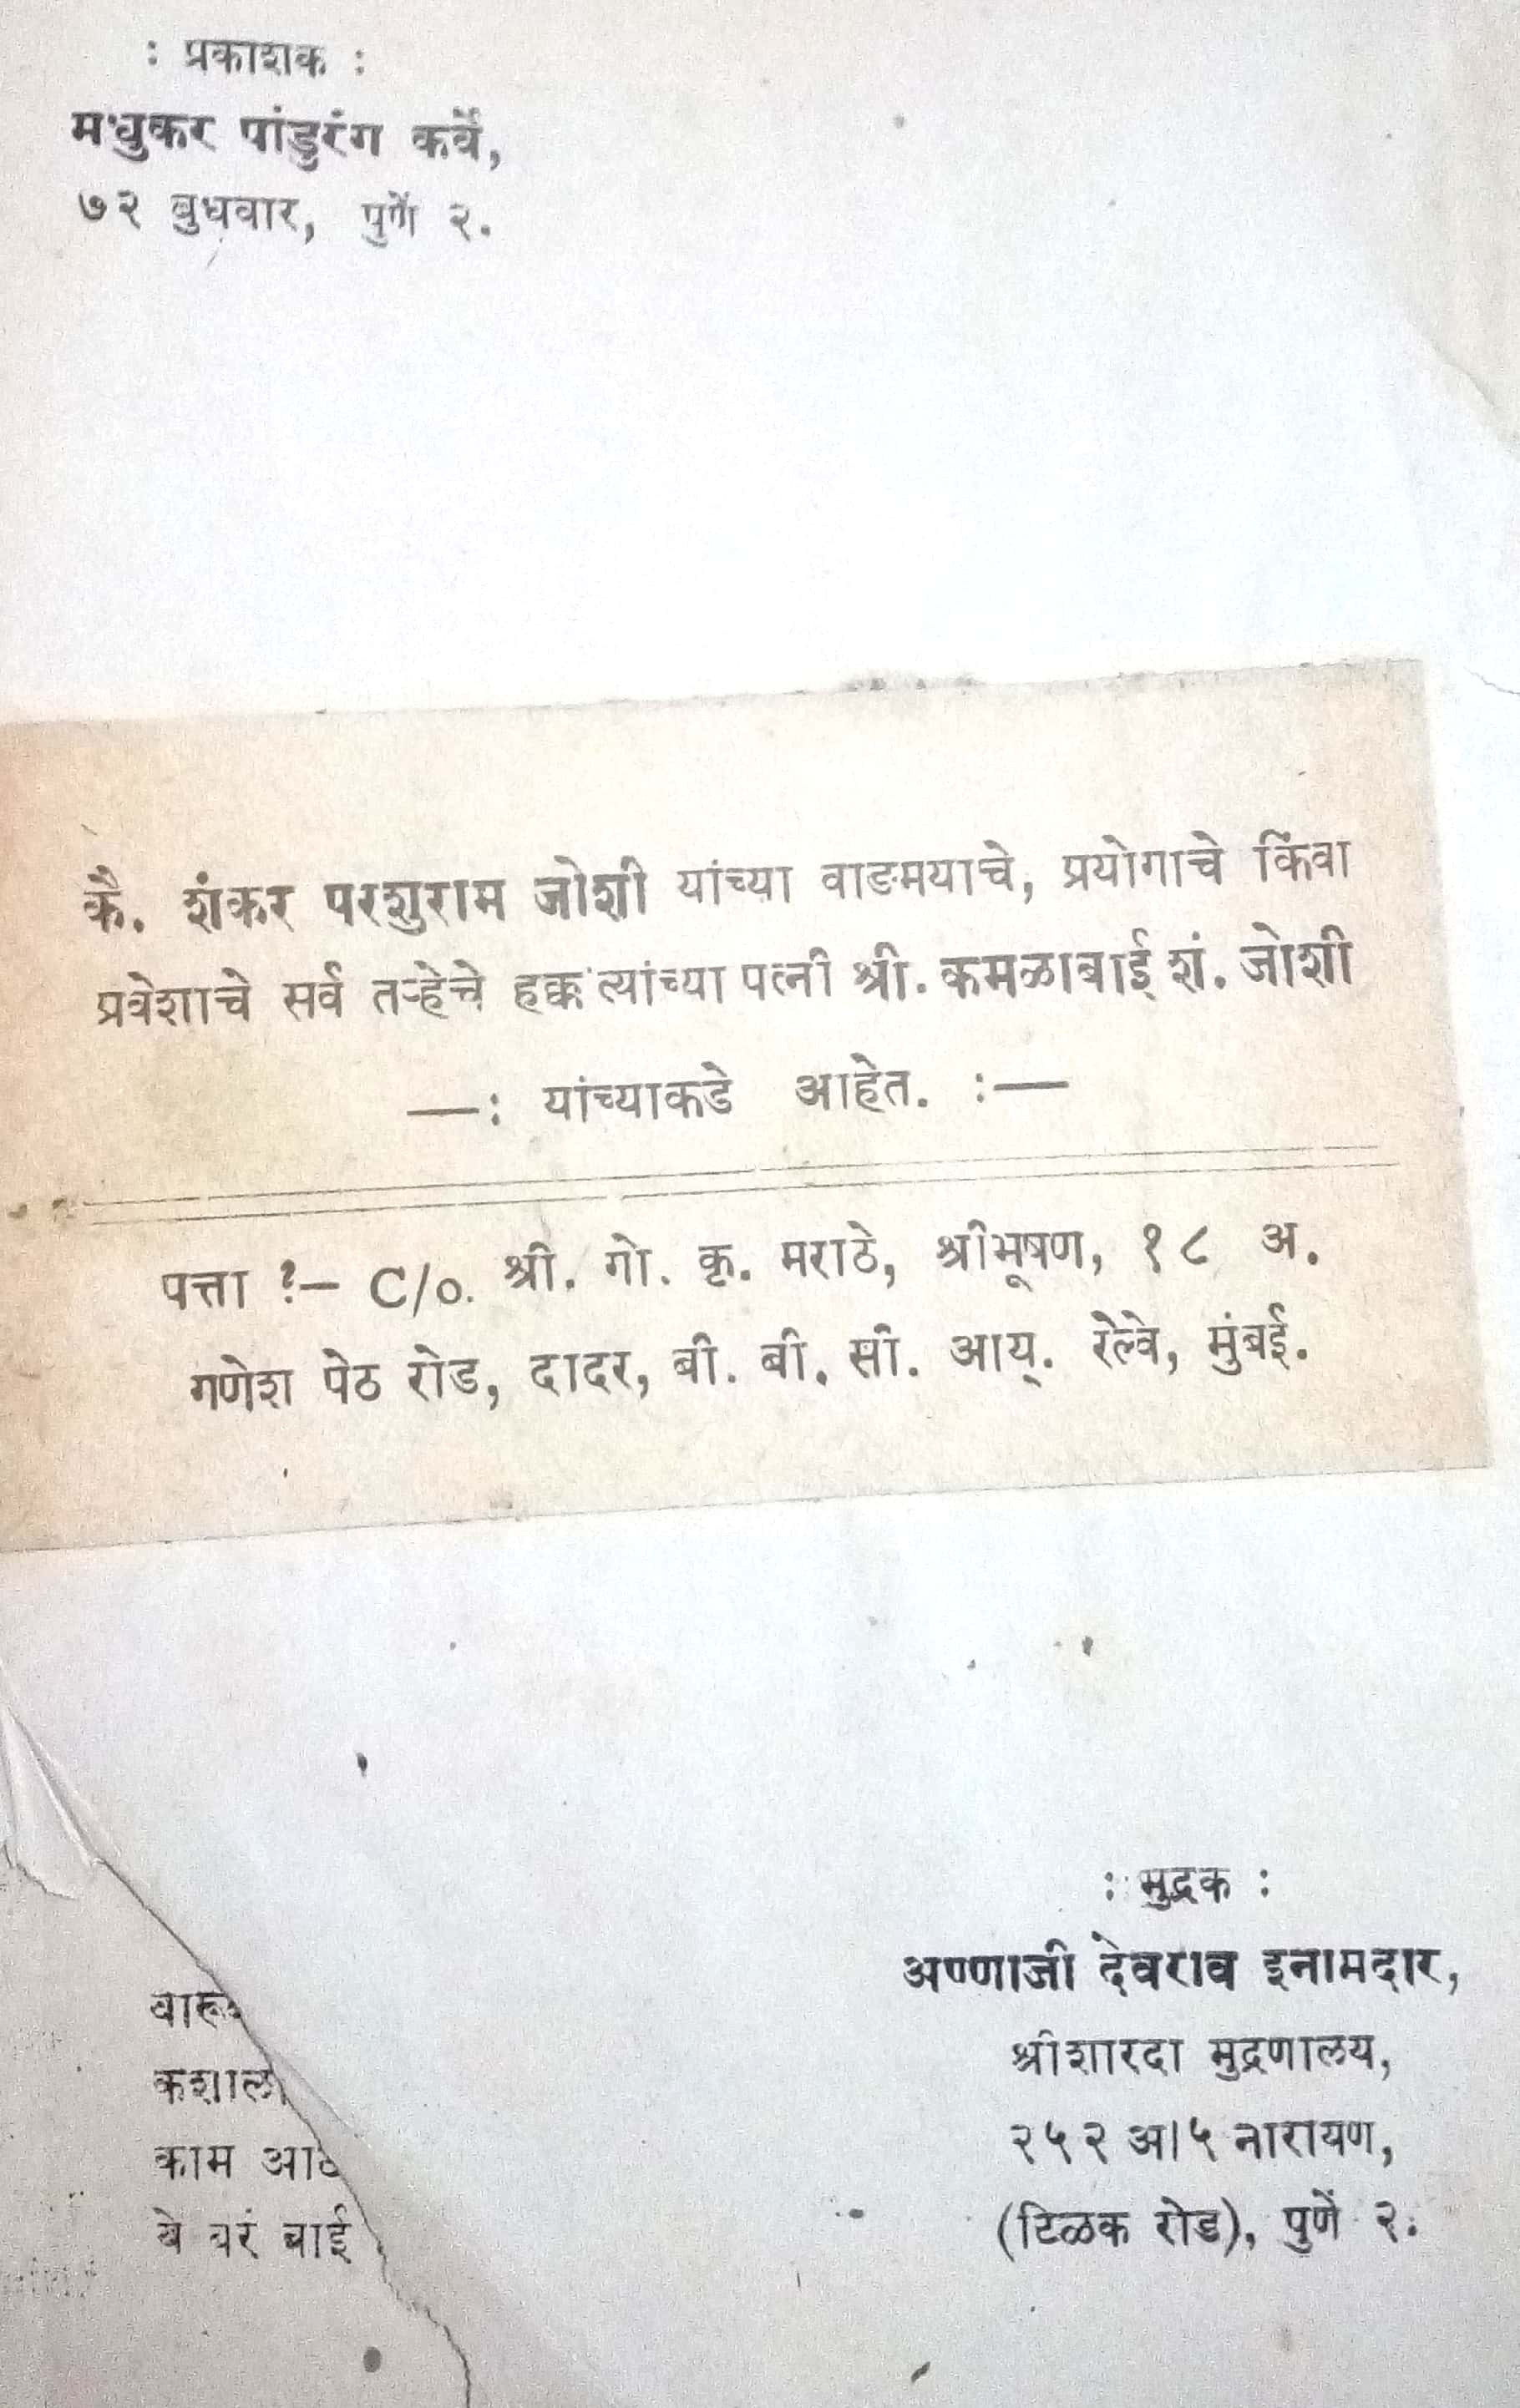 : प्रकाशक :
मधुकर पांडुरंग कर्वे,
७२ बुधवार, पुणें २.
कै. शंकर परशुराम जोशी यांच्या वाङमयाचे, प्रयोगाचे किंवा
प्रवेशाचे सर्व तऱ्हेचे हक्क त्यांच्या पत्नी श्री. कमळाबाई शं. जोशी
—: यांच्याकडे आहेत. :—
पत्ता :– C/o. श्री. गो. कृ. मराठे, श्रीभूषण, १८ अ.
गणेश पेठ रोड, दादर, बी. बी. सी. आय्. रेल्वे, मुंबई.
: मुद्रक :
अण्णाजी देवराव इनामदार,
श्रीशारदा मुद्रणालय,
२५२ अ।५ नारायण,
(टिळक रोड), पुणें २.
कशाल
काम
बे बरं बाई